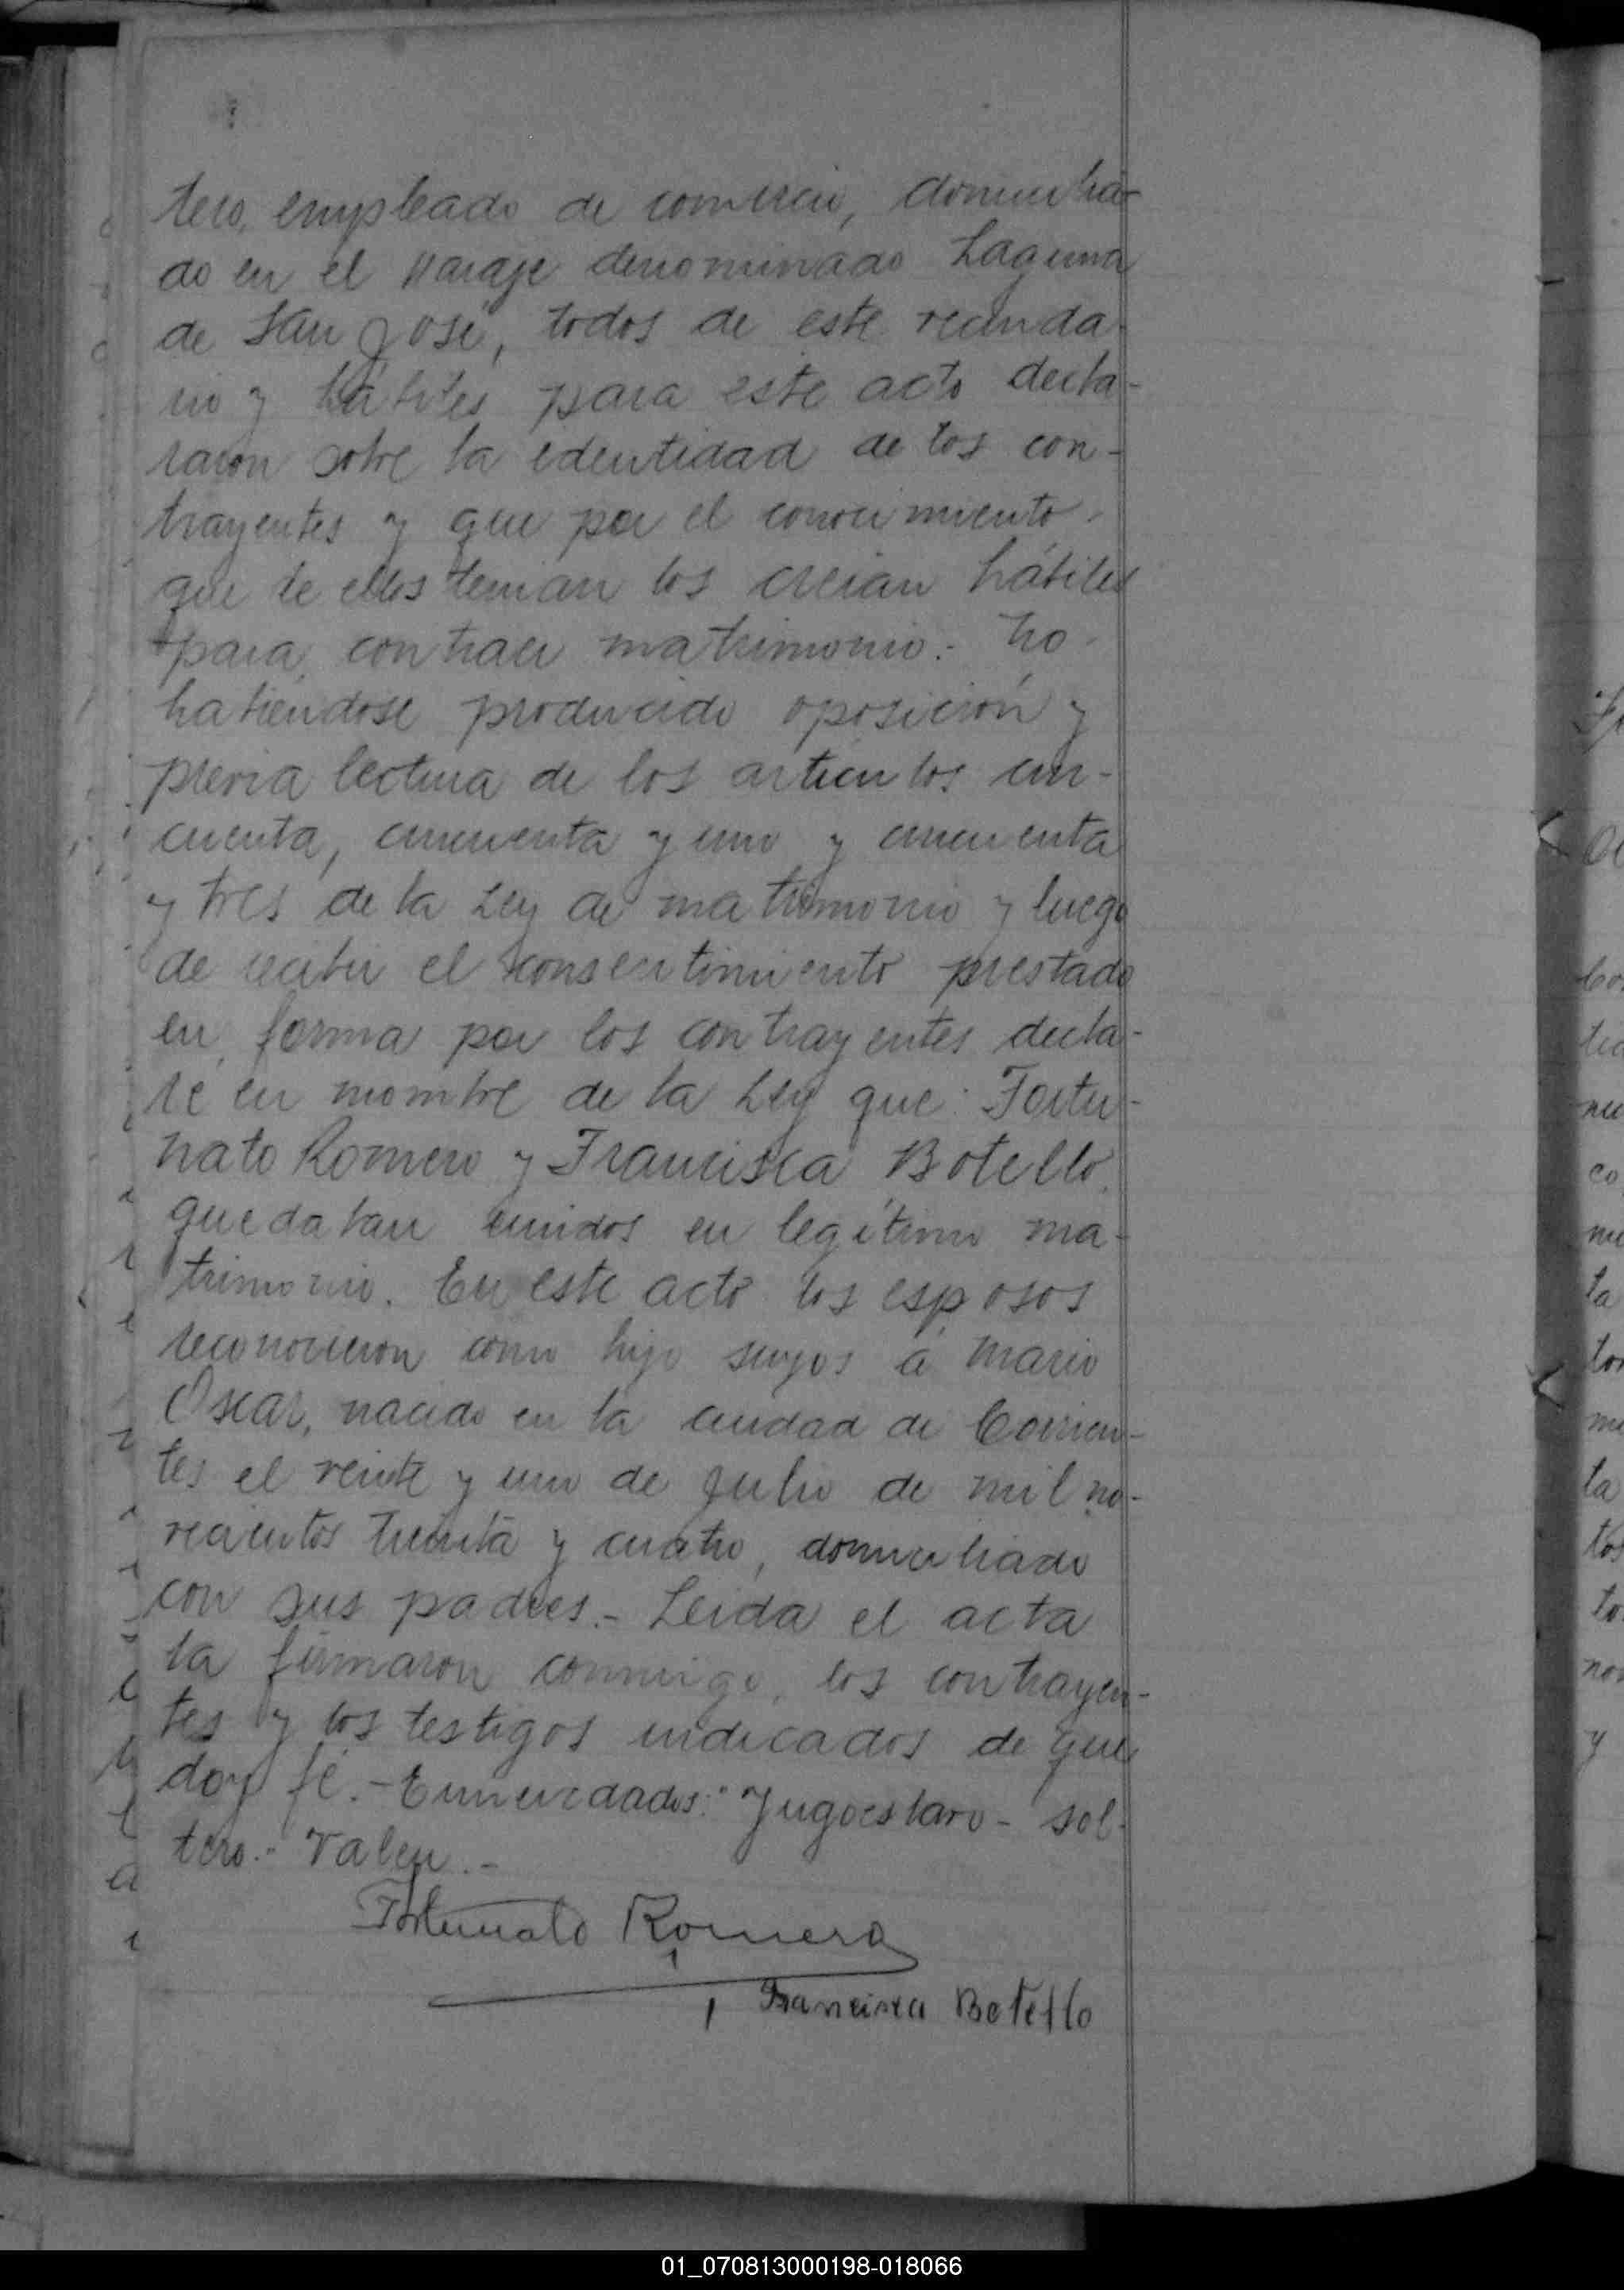 tero, empleado de comercio, domicilia-
do en el paraje denominado Laguna
de San José, todos de este vecinda-
rio y hábiles para este acto decla-
raron sobre la edentidad de los con-
trayentes y que por el conocimiento
que de ellos tenian los creian hábiles
para contraer matrimonio.- No
habiéndose producido oposición y
previa lectura de los articulos cin-
cuenta, cincuenta y uno y cincuenta
y tres de la Ley de matrimonio y luego
de recibir el consentimiento prestado
en forma por los contrayentes decla-
ré en nombre de la Ley que: Fortu-
nato Romero y Francisca Botello,
quedaban unidos en legítimo ma-
trimonio. En este acto los esposos
reconocieron como hijo suyos á Mario
Oscar, nacido en la ciudad de Corrien-
tes el veinte y uno de Julio de mil no-
vecientos treinta y cuatro, domiciliado
con sus padres.- Leida el acta
la firmaron conmigo, los contrayen-
tes y los testigos indicados de que
doy fé.- Enmendados: "Yugoeslavo - sol-
tero." Valen.-
Fortunato Romero
Francisca Botello
01_070813000198-018066